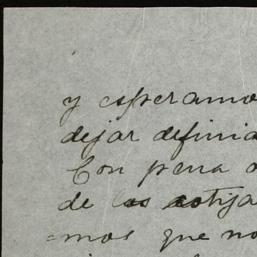 y esperamo
dejar definia
Con pena a
de las cotiza
mos que no